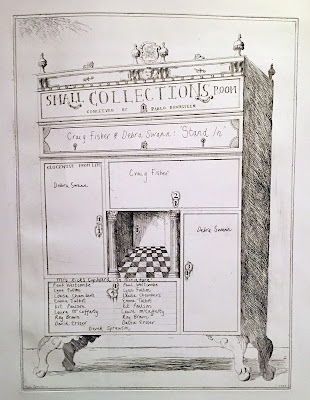 SMALL COLLECTIONS ROOM
CONCEIVED BY PABLO BRONSTEIN
Craig Fisher & Debra Swann: 'Stand In'
CLOCKWISE FROM LEFT
Debra Swann
Craig Fisher
Debra Swann
Mrs Rick's Cupboard
Paul Westcombe
Lynn Fulton
Louisa Chambers
Emma Talbot
Kit Poulson
Laura McCafferty
Ray Brown
David Strser
Paul Westcombe
Lynn Fulton
Louisa Chambers
Emma Talbot
Kit Poulson
Laura McCafferty
Ray Brown
Derek Sprawson